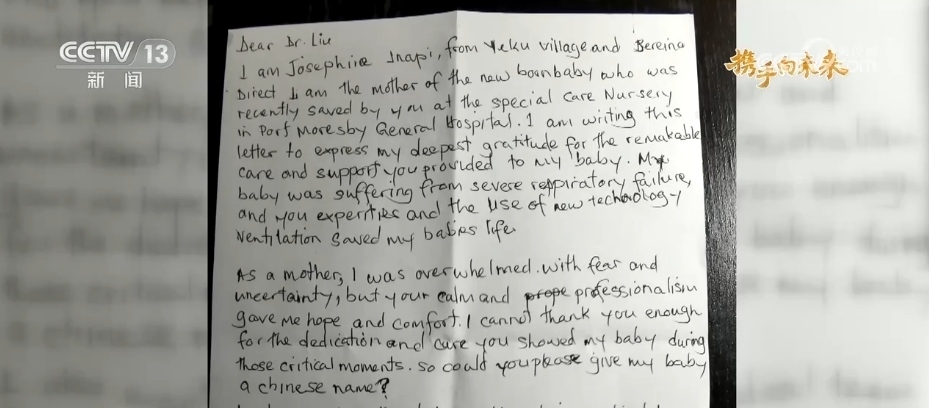 CCTV 13
新闻
携手向未来
Dear Dr. Liu
I am Josephine Inapi, from Yeku village and Bereina
Direct I am the mother of the new boanbaby who was
recently saved by you at the special care Nursery
in Port Moresby General Hospital. I am writing this
letter to express my deepest gratitude for the remakable
care and support you provided to my baby. My
baby was suffering from severe respiratory failure,
and you experities and the use of new technology
Ventilation saved my babies life.
As a mother, I was overwhelmed with fear and
uncertainty, but your calm and professionalism
gave me hope and comfort. I cannot thank you enough
for the dedication and care you showed my baby during
those critical moments. so could you please give my baby
a chinese name?